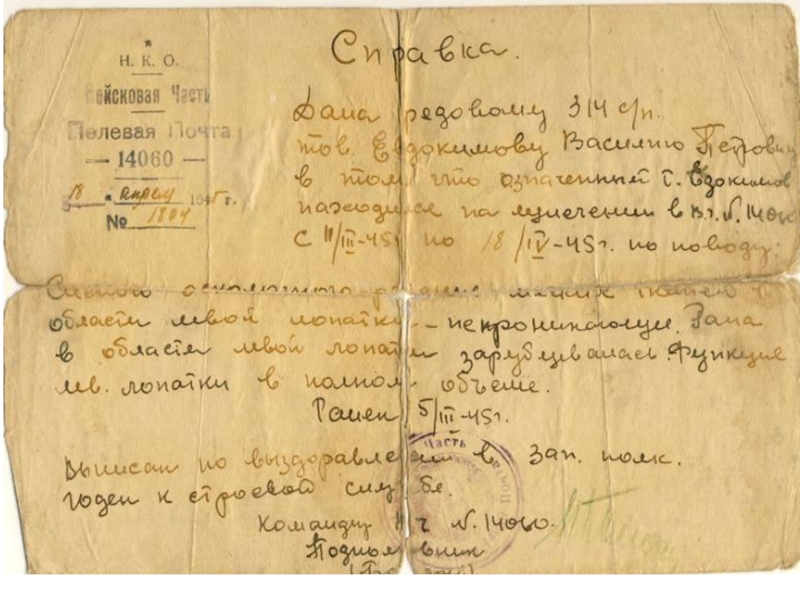 Н. К. О.
Войсковая Часть
Полевая Почта
— 14060 —
18 " апреля 1945 г.
№ 1804
Справка.
Дана рядовому 314 с/п.
тов. Евдокимову Василию Петрович
в том что означенный т. Евдокимов
находился на излечении в в.ч. №. 14060
с 11/III-45г по 18/IV-45г. по поводу:
Слепого осколочного ранение мягких тканей
области левой лопатки - непроникающее. Рана
в области левой лопатки зарубцевалась. Функция
лев. лопатки в полном объеме.
Ранен 5/III-45г.
Выписан по выздоравлении в зап. полк.
годен к строевой службе.
Командир В ч №. 14060.
Подполковник
Часть